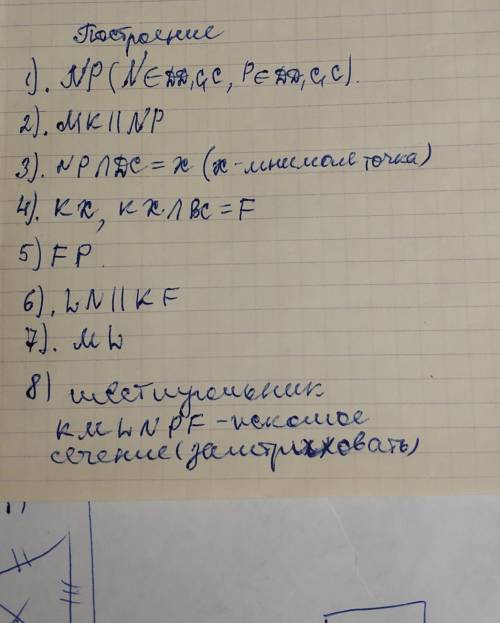 Построение
1). NP (N∈DD₁C₁C, P∈DD₁C₁C).
2). MK || NP
3). NP∩DC = X (X - мнимая точка)
4). KX, KX∩BC = F
5) FP.
6). LN || KF
7). ML
8) шестиугольник
KMLNPF - искомое
сечение (заштриховать)